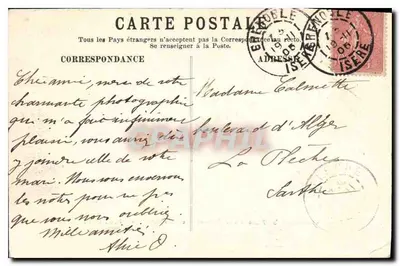 CARTE POSTALE
Tous les Pays étrangers n'acceptent pas la Correspondance au recto.
Se renseigner à la Poste.
CORRESPONDANCE
ADRESSE
GRENOBLE
ISÈRE
GRENOBLE
ISÈRE
Chère amie, merci de votre
charmante photographie
qui m'a fait infiniment
plaisir, vous auriez dû
y joindre celle de votre
mari. Nous vous envoyons
les nôtres pour ne pas
que vous nous oubliiez.
Mille amitiés
Alice
Madame Calmette
boulevard d'Alger
La Flèche
Sarthe